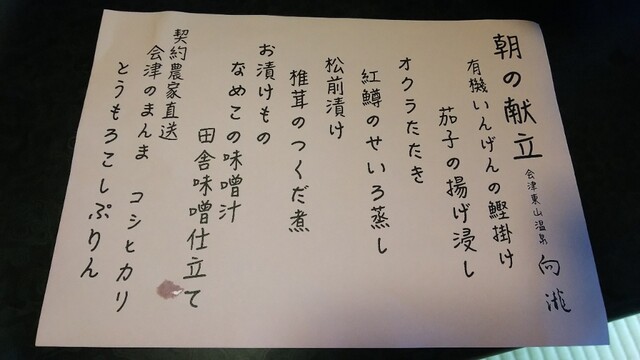 朝の献立
会津東山温泉 向瀧
有機いんげんの鰹掛け
茄子の揚げ浸し
オクラたたき
紅鱒のせいろ蒸し
松前漬け
椎茸のつくだ煮
お漬けもの
なめこの味噌汁
田舎味噌仕立て
契約農家直送
会津のまんま コシヒカリ
とうもろこしぷりん